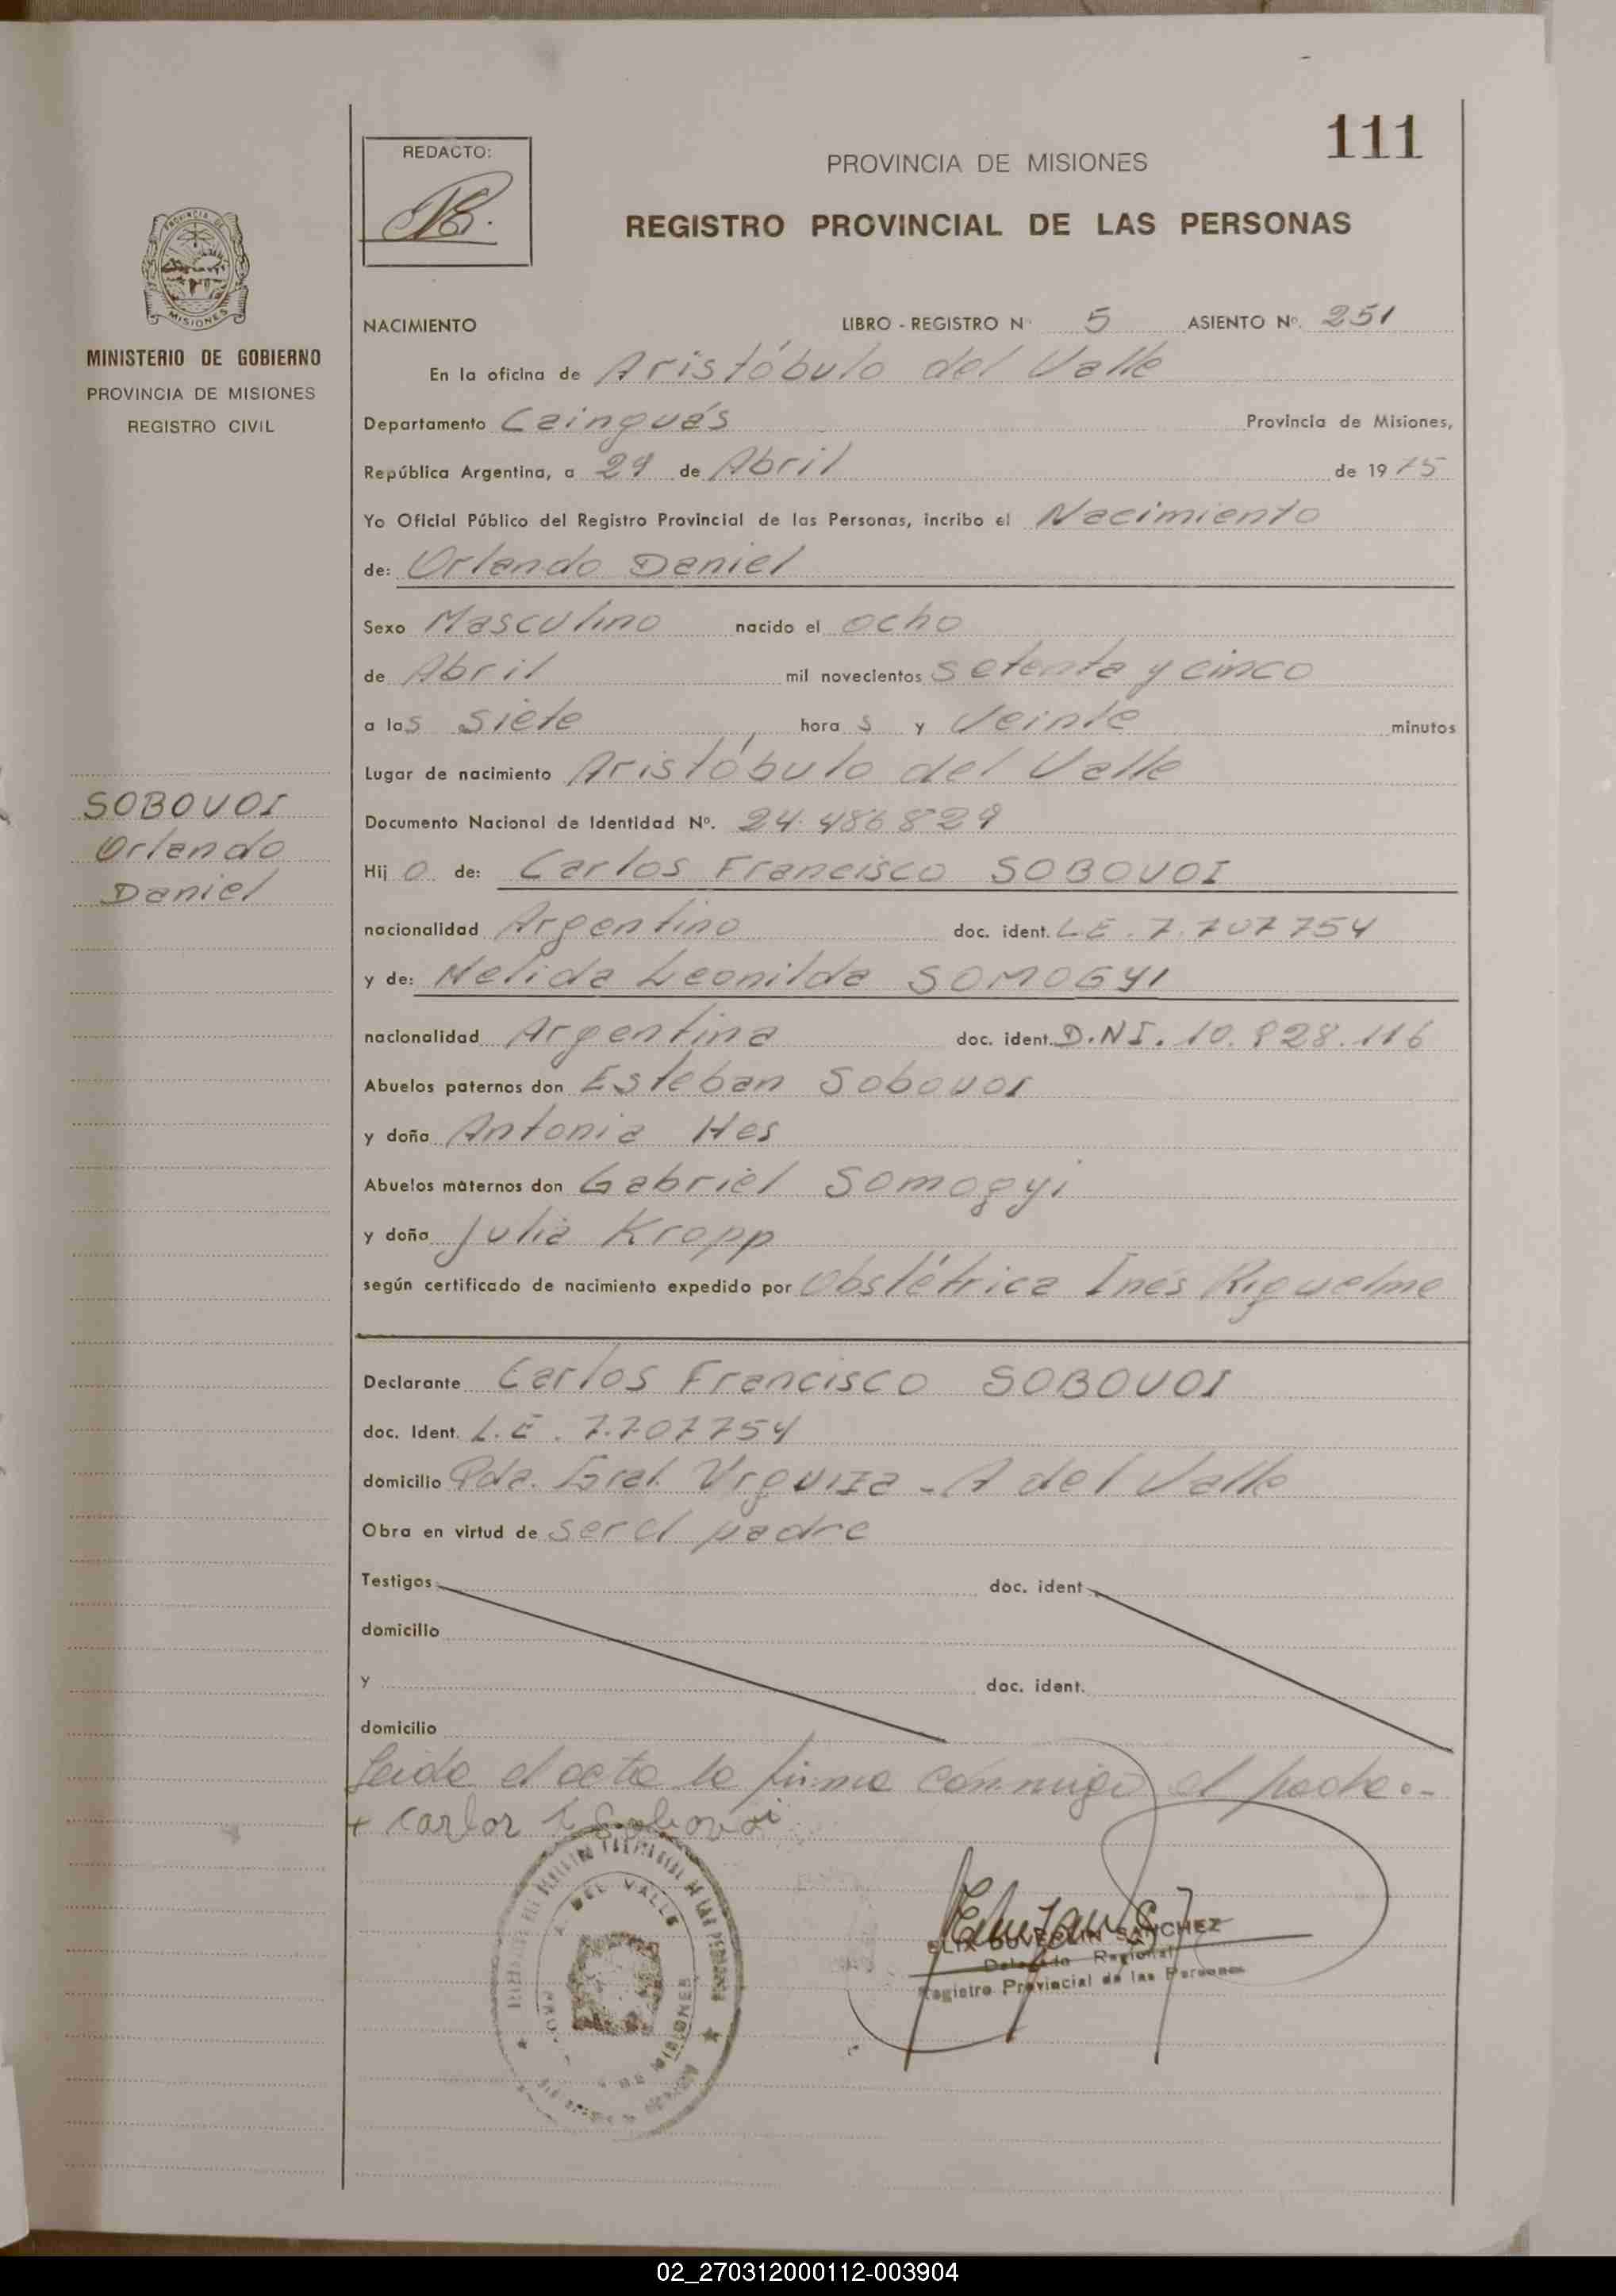 111
REDACTO:
PROVINCIA DE MISIONES
REGISTRO PROVINCIAL DE LAS PERSONAS
MISIONES
MINISTERIO DE GOBIERNO
PROVINCIA DE MISIONES
REGISTRO CIVIL
SOBOVOI
Orlando
Daniel
NACIMIENTO LIBRO - REGISTRO N° 5 ASIENTO Nº. 251
En la oficina de Aristóbulo del Valle
Departamento Cainguás Provincia de Misiones,
República Argentina, a 29 de Abril de 1975
Yo Oficial Público del Registro Provincial de las Personas, incribo el Nacimiento
de: Orlando Daniel
Sexo Masculino nacido el ocho
de Abril mil novecientos setenta y cinco
a las siete hora s y veinte minutos
Lugar de nacimiento Aristóbulo del Valle
Documento Nacional de Identidad Nº. 24.486829
Hij o de: Carlos Francisco SOBOVOI
nacionalidad Argentino doc. ident. L.E. 7.707754
y de: Nelida Leonilda SOMOGYI
nacionalidad Argentina doc. ident. D.N.I. 10.828.116
Abuelos paternos don Esteban Sobovoi
y doña Antonia Hes
Abuelos maternos don Gabriel Somogyi
y doña Julia Kropp
según certificado de nacimiento expedido por Obstétrica Inés Riquelme
Declarante Carlos Francisco SOBOVOI
doc. Ident. L.E. 7.707754
domicilio Pda. Gral. Urquiza - A del Valle
Obra en virtud de ser el padre
Testigos doc. ident
domicilio
y doc. ident.
domicilio
Leida el acta la firma conmigo el padre.-
+ Carlos F Sobovoi
DEL VALLE
MISIONES
ELIX SANCHEZ
Delegado Regional
Registro Provincial de las Personas
02_270312000112-003904